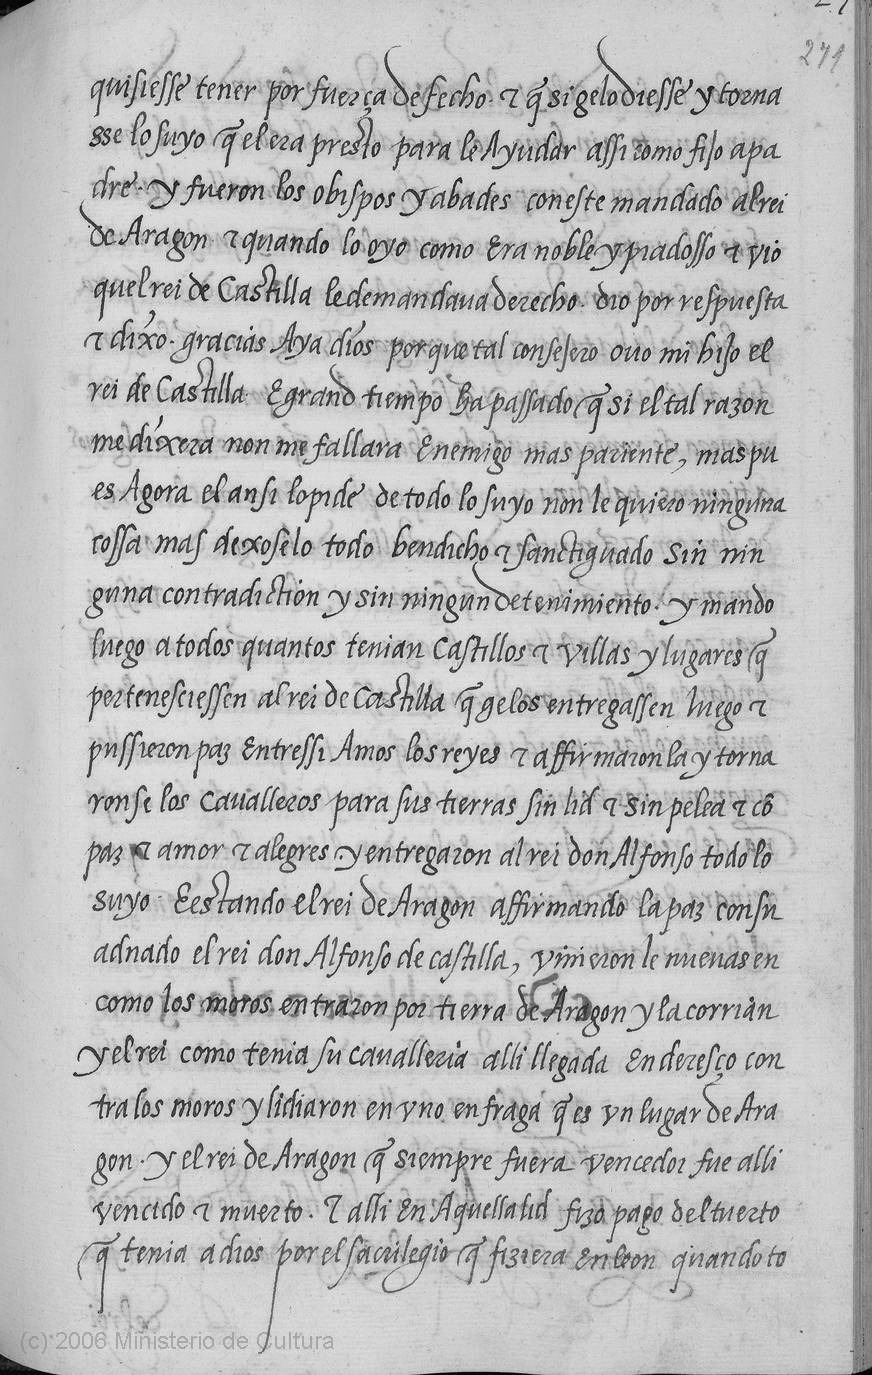 271
quisiesse tener por fuerça de fecho · ⁊ q̃ si gelo diesse y torna
sse lo suyo q̃ el era presto para le Ayudar assi como fijo a pa
dre · y fueron los obispos y abades con este mandado al rei
de Aragon ⁊ quando lo oyo como Era noble y piadosso ⁊ vio
quel rei de Castilla le demandaua derecho · dio por respuesta
⁊ dixo · gracias Aya dios porque tal consejero ouo mi hijo el
rei de Castilla E grand tiempo ha passado q̃ si el tal razon
me dixera non me fallara Enemigo mas pariente, mas pu
es Agora el ansi lo pide de todo lo suyo non le quiero ninguna
cossa mas dexoselo todo bendicho ⁊ sanctiguado sin nin
guna contradiction y sin ningun detenimiento · y mando
luego a todos quantos tenian Castillos ⁊ villas y lugares q̃
pertenesciessen al rei de Castilla q̃ gelos entregassen luego ⁊
pussieron paz Entressi Amos los reyes ⁊ affirmaron la y torna
ronse los Caualleros para sus tierras sin lid ⁊ sin pelea ⁊ cõ
paz ⁊ amor ⁊ alegres · y entregaron al rei don Alfonso todo lo
suyo · E estando el rei de Aragon affirmando la paz con su
adnado el rei don Alfonso de castilla, vinieron le nueuas en
como los moros entraron por tierra de Aragon y la corrian
y el rei como tenia su caualleria alli llegada Enderesço con
tra los moros y lidiaron en vno en fraga q̃ es vn lugar de Ara
gon · y el rei de Aragon q̃ siempre fuera vencedor fue alli
vencido ⁊ muerto · ⁊ alli En Aquella lid fizo pago del tuerto
q̃ tenia a dios por el sacrilegio q̃ fiziera En leon quando to
(c) 2006 Ministerio de Cultura